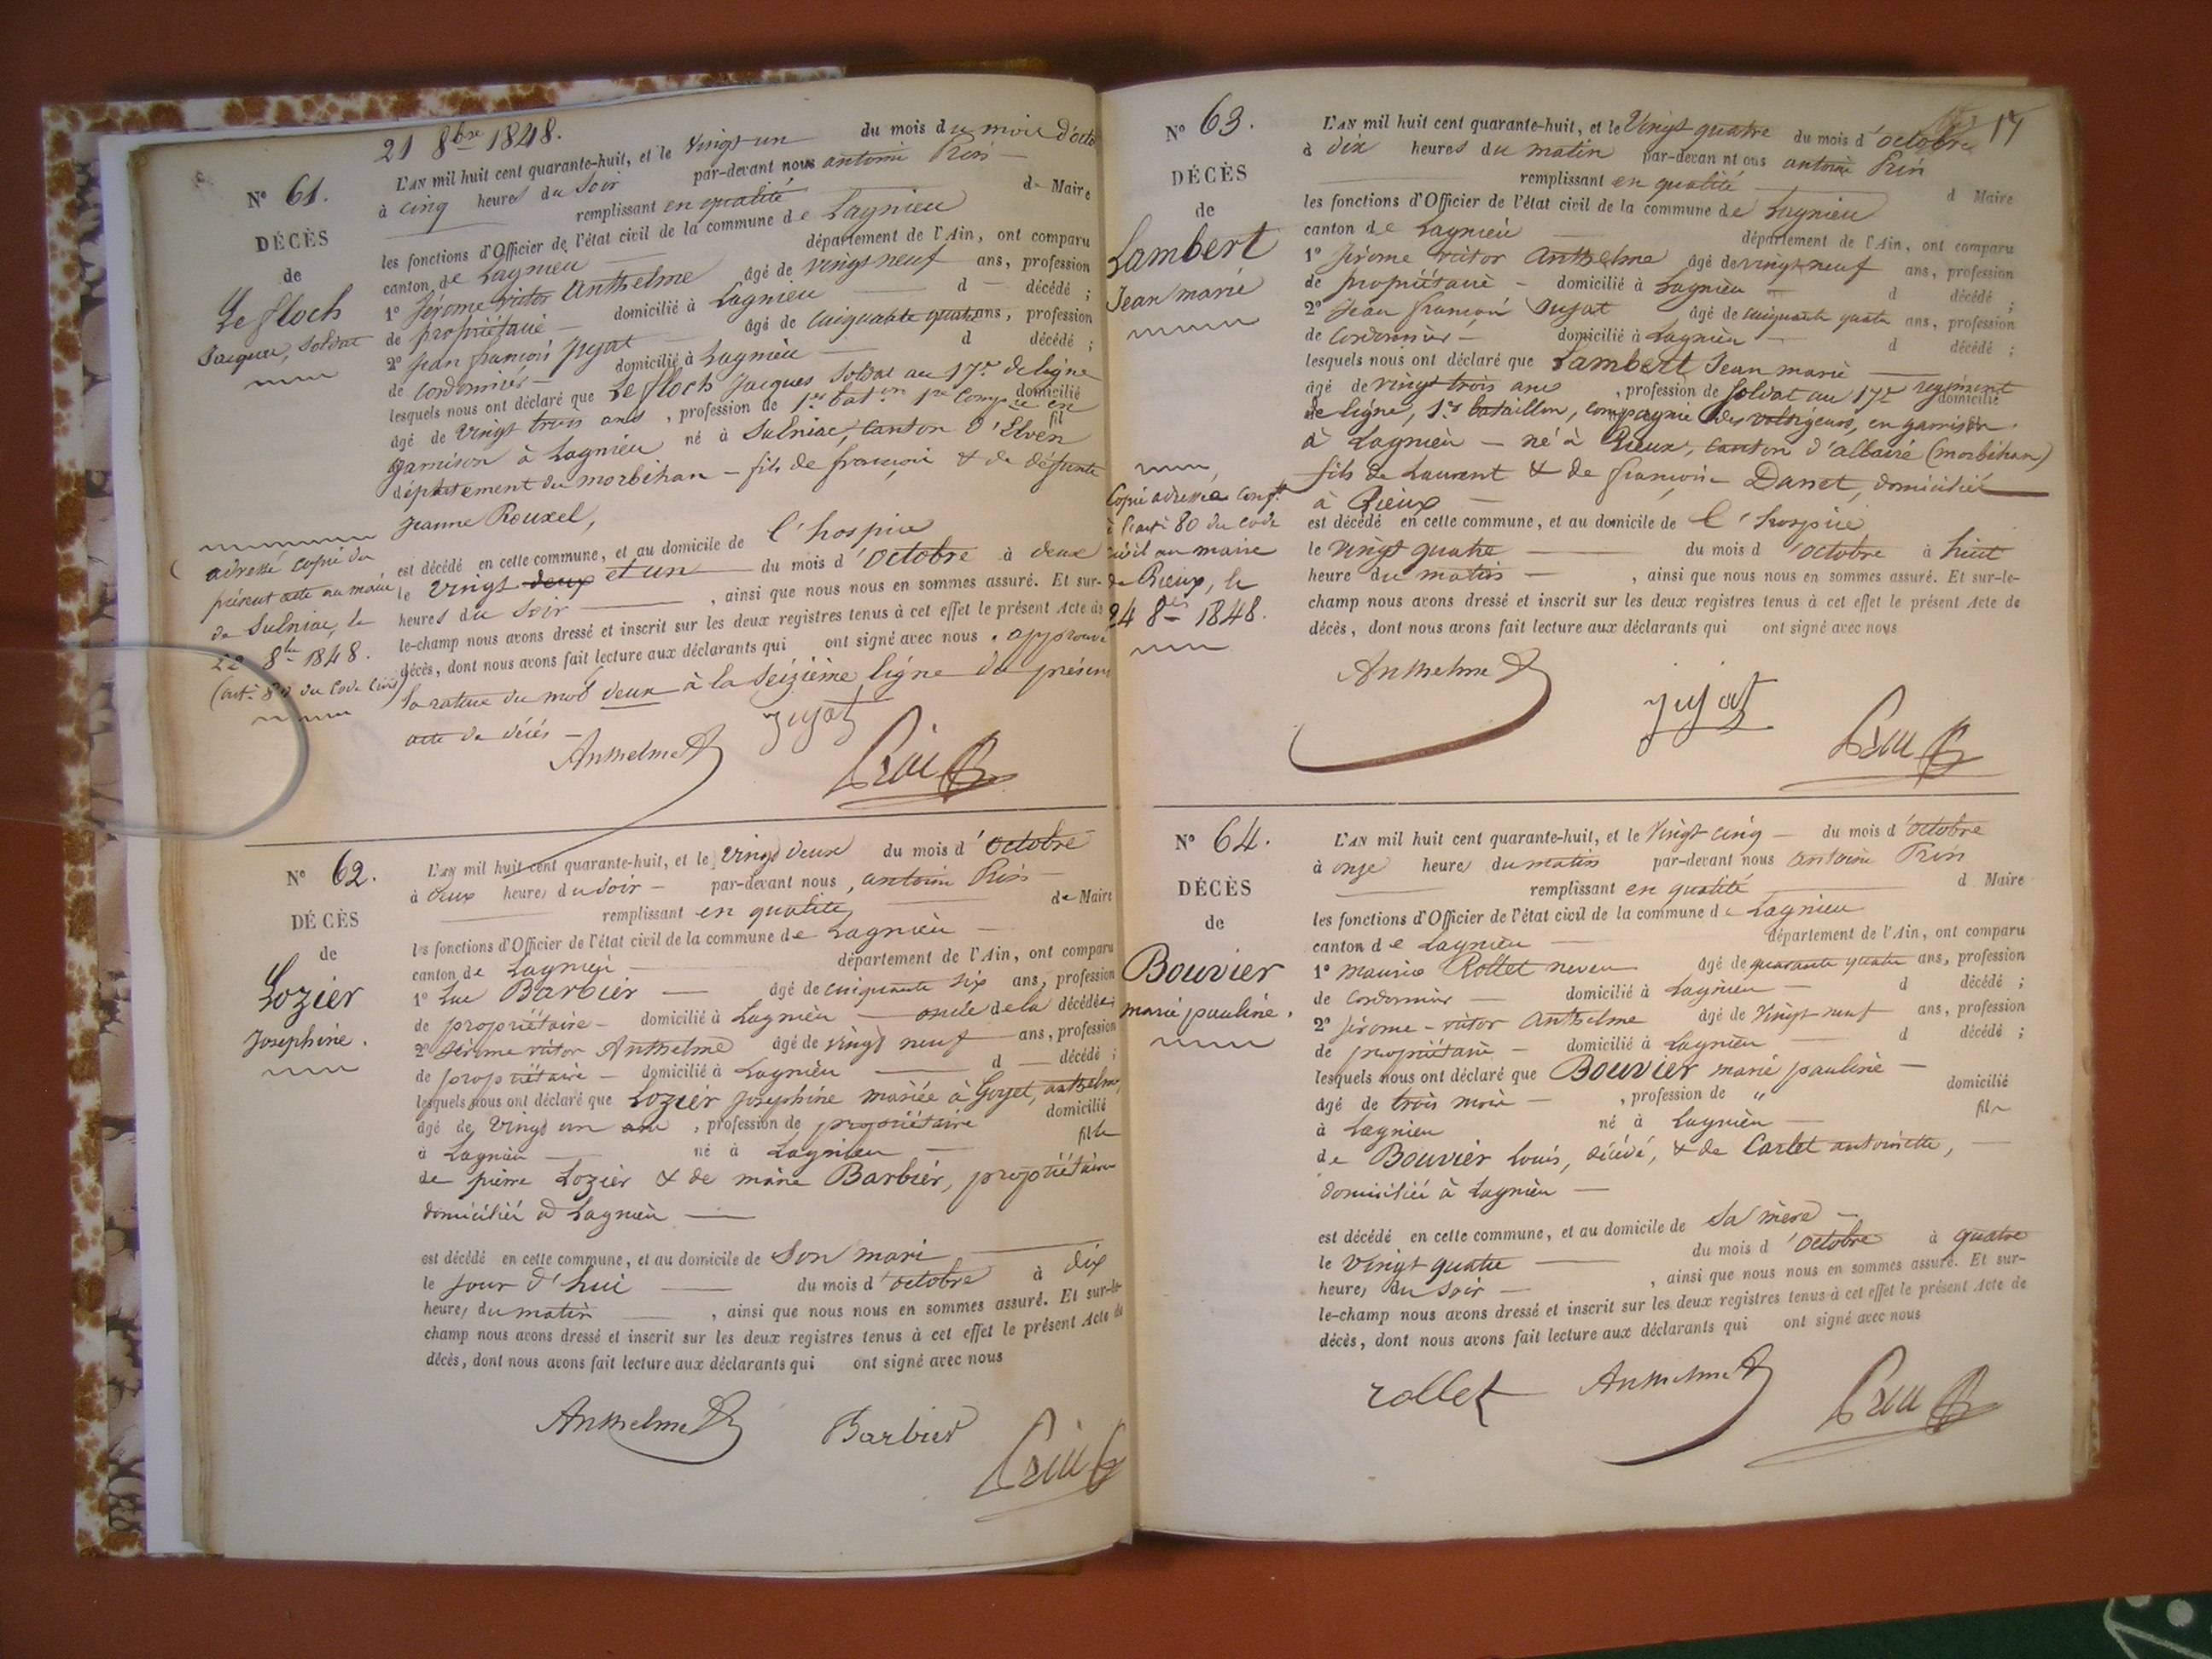 21 8bre 1848.
N° 61.
DÉCÈS
de
Le floch
Jacques, Soldat
L'AN mil huit cent quarante-huit, et le vingt un du mois du mois d'octo
à cinq heures du Soir par-devant nous antoine Prin
remplissant en qualité de Maire
les fonctions d'Officier de l'état civil de la commune de Lagnieu
canton de Lagnieu département de l'Ain, ont comparu
1° Jérome victor Anthelme âgé de vingt neuf ans, profession
de propriétaire domicilié à Lagnieu d décédé ;
2° Jean françois Jujat âgé de cinquante quatre ans, profession
de Cordonnier domicilié à Lagnieu d décédé ;
lesquels nous ont déclaré que Le floch Jacques Soldat au 17e de ligne
âgé de vingt trois ans, profession de 1er bat.on 1re Compie en domicilié
garnison à Lagnieu né à Sulniac, canton d'Elven fil
département du morbihan – fils de françois & de défunte
Jeanne Rouxel,
est décédé en cette commune, et au domicile de l'hospice
le vingt deux et un du mois d'octobre à deux
heures du Soir, ainsi que nous nous en sommes assuré. Et sur-
le-champ nous avons dressé et inscrit sur les deux registres tenus à cet effet le présent Acte de
décès, dont nous avons fait lecture aux déclarants qui ont signé avec nous. approuvé
la rature du mot deux à la Seizième ligne du présent
acte de décès –
adressé copie du
présent acte au maire
de Sulniac, le
22 8bre 1848.
(art. 80 du Code Civil)
Anthelme Jujat Prin
N° 62.
DÉCÈS
de
Lozier
Josephine.
L'AN mil huit cent quarante-huit, et le vingt deux du mois d'octobre
à deux heures du Soir – par-devant nous, antoine Prin
remplissant en qualité de Maire
les fonctions d'Officier de l'état civil de la commune de Lagnieu
canton de Lagnieu département de l'Ain, ont comparu
1° Luc Barbier âgé de cinquante six ans, profession
de propriétaire – domicilié à Lagnieu – oncle de la décédée ;
2° Jérome victor Anthelme âgé de vingt neuf ans, profession
de propriétaire – domicilié à Lagnieu d décédé ;
lesquels nous ont déclaré que Lozier Josephine mariée à Goyet, anthelme
âgé de vingt un ans, profession de propriétaire domicilié
à Lagnieu né à Lagnieu fille
de pierre Lozier & de marie Barbier, propriétaires
domiciliés à Lagnieu
est décédé en cette commune, et au domicile de Son mari
le jour d'hui du mois d'octobre à dix
heures du matin, ainsi que nous nous en sommes assuré. Et sur-le-
champ nous avons dressé et inscrit sur les deux registres tenus à cet effet le présent Acte de
décès, dont nous avons fait lecture aux déclarants qui ont signé avec nous
Anthelme Barbier Prin
17
N° 63.
DÉCÈS
de
Lambert
Jean marie
L'AN mil huit cent quarante-huit, et le Vingt quatre du mois d'octobre
à dix heures du matin par-devan nt ous antoine Prin
remplissant en qualité d Maire
les fonctions d'Officier de l'état civil de la commune de Lagnieu
canton de Lagnieu département de l'Ain, ont comparu
1° Jérome victor Anthelme âgé de vingt neuf ans, profession
de propriétaire – domicilié à Lagnieu d décédé ;
2° Jean françois Jujat âgé de cinquante quatre ans, profession
de Cordonnier – domicilié à Lagnieu – d décédé ;
lesquels nous ont déclaré que Lambert Jean marie
âgé de vingt trois ans, profession de Soldat au 17e régiment domicilié
de ligne, 1er bataillon, compagnie des voltigeurs, en garnison
à Lagnieu – né à Rieux, canton d'allaire (morbihan)
fils de Laurent & de françoise Danet, domiciliés
à Rieux
est décédé en cette commune, et au domicile de l'hospice
le vingt quatre du mois d'octobre à huit
heure du matin –, ainsi que nous nous en sommes assuré. Et sur-le-
champ nous avons dressé et inscrit sur les deux registres tenus à cet effet le présent Acte de
décès, dont nous avons fait lecture aux déclarants qui ont signé avec nous
Copie adressée conft.
à l'art. 80 du code
civil au maire
de Rieux, le
24 8bre 1848.
Anthelme Jujat Prin
N° 64.
DÉCÈS
de
Bouvier
marie pauline.
L'AN mil huit cent quarante-huit, et le Vingt cinq – du mois d'octobre
à onze heures du matin par-devant nous antoine Prin
remplissant en qualité d Maire
les fonctions d'Officier de l'état civil de la commune de Lagnieu
canton de Lagnieu département de l'Ain, ont comparu
1° maurice Rollet neveu âgé de quarante quatre ans, profession
de Cordonnier domicilié à Lagnieu – d décédé ;
2° Jérome – victor Anthelme âgé de vingt neuf ans, profession
de propriétaire – domicilié à Lagnieu d décédé ;
lesquels nous ont déclaré que Bouvier marie pauline –
âgé de trois mois –, profession de " domicilié
à Lagnieu né à Lagnieu – fille
de Bouvier Louis, décédé, & de Carlet antoinette,
domiciliée à Lagnieu –
est décédé en cette commune, et au domicile de Sa mère –
le vingt quatre du mois d'octobre à quatre
heures du Soir –, ainsi que nous nous en sommes assuré. Et sur-
le-champ nous avons dressé et inscrit sur les deux registres tenus à cet effet le présent Acte de
décès, dont nous avons fait lecture aux déclarants qui ont signé avec nous
rollet Anthelme Prin